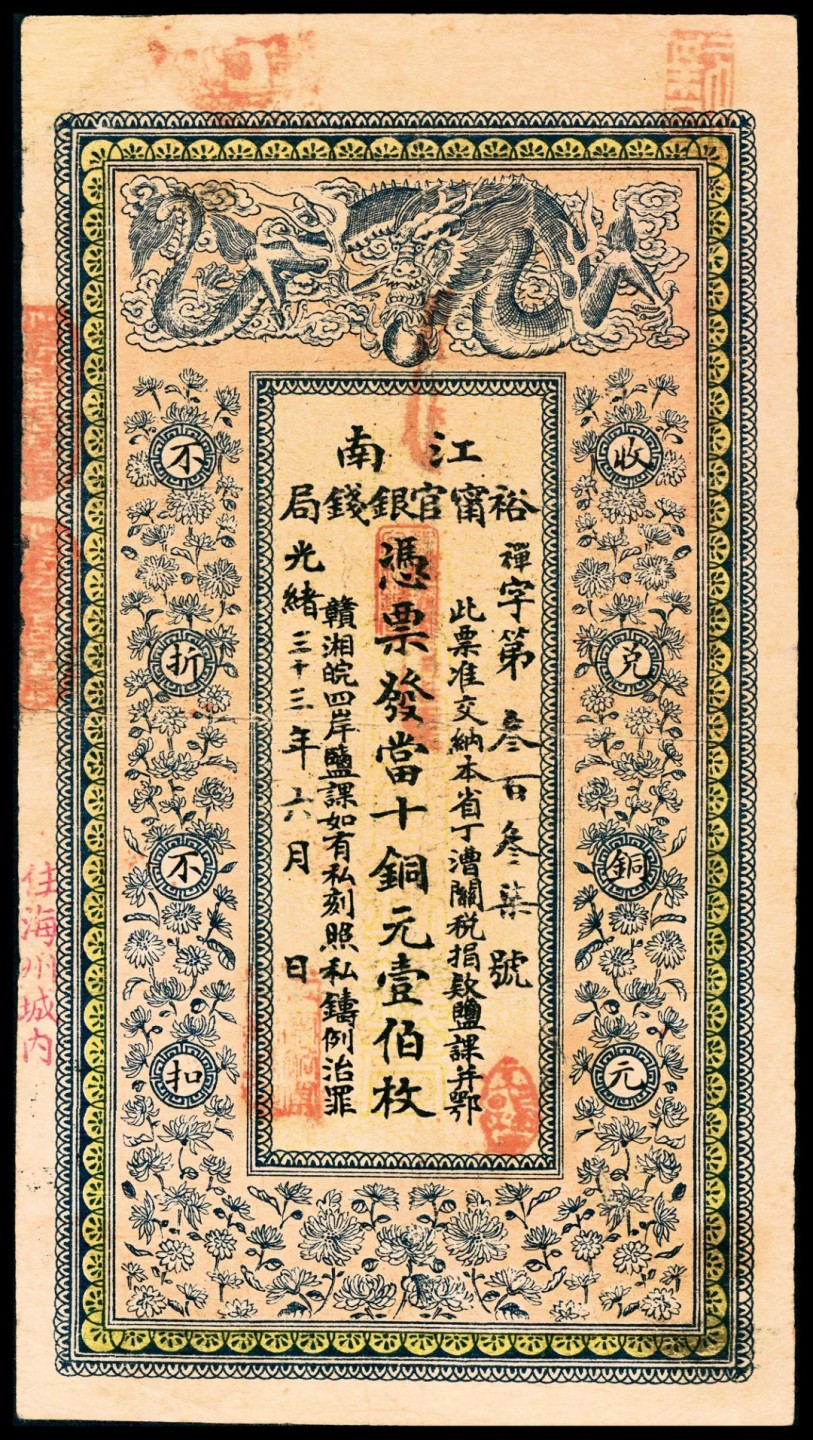 江南
裕甯官銀錢局
禪字第叁百叁柒號
此票准交納本省丁漕關税捐款鹽課并鄂
憑票發當十銅元壹伯枚
贛湘皖四岸鹽課如有私刻照私鑄例治罪
光緒三十三年六月 日
收兑銅元
不折不扣
住海州城内